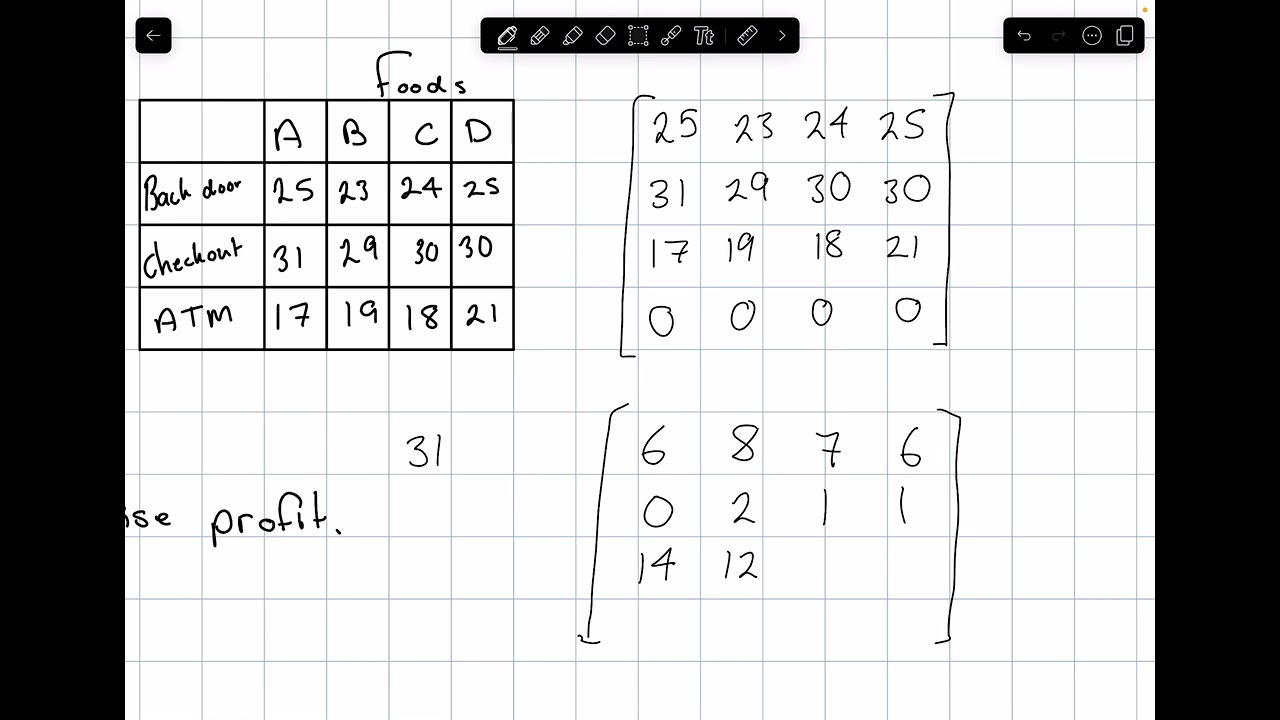 Foods
A B C D
Back door 25 23 24 25
Checkout 31 29 30 30
ATM 17 19 18 21
25 23 24 25
31 29 30 30
17 19 18 21
0 0 0 0
31
ise profit.
6 8 7 6
0 2 1 1
14 12
Tt